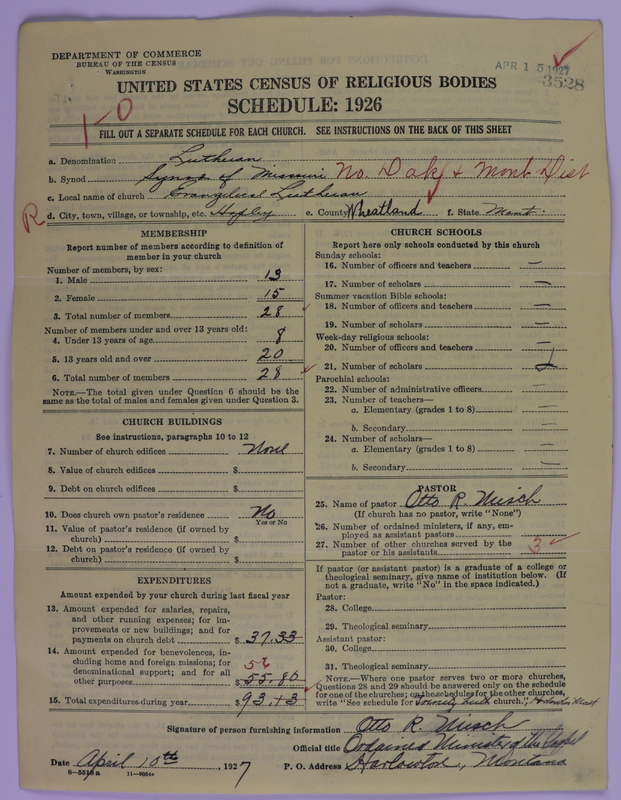 DEPARTMENT OF COMMERCE
BUREAU OF THE CENSUS
WASHINGTON
APR 15 1927
3528
UNITED STATES CENSUS OF RELIGIOUS BODIES
SCHEDULE: 1926
1-0
FILL OUT A SEPARATE SCHEDULE FOR EACH CHURCH. SEE INSTRUCTIONS ON THE BACK OF THIS SHEET
a. Denomination Lutheran
b. Synod Synod of Missouri No. Dak & Mont Dist
c. Local name of church Evangelical Lutheran
R d. City, town, village, or township, etc. e. County Wheatland f. State Mont.
MEMBERSHIP
Report number of members according to definition of
member in your church
Number of members, by sex:
1. Male 13
2. Female 15
3. Total number of members 28
Number of members under and over 13 years old:
4. Under 13 years of age 8
5. 13 years old and over 20
6. Total number of members 28
NOTE.—The total given under Question 6 should be the
same as the total of males and females given under Question 3.
CHURCH BUILDINGS
See instructions, paragraphs 10 to 12
7. Number of church edifices None
8. Value of church edifices $
9. Debt on church edifices $
10. Does church own pastor's residence No
Yes or No
11. Value of pastor's residence (if owned by
church) $
12. Debt on pastor's residence (if owned by
church) $
EXPENDITURES
Amount expended by your church during last fiscal year
13. Amount expended for salaries, repairs,
and other running expenses; for im-
provements or new buildings; and for
payments on church debt $ 37.33
14. Amount expended for benevolences, in-
cluding home and foreign missions; for
denominational support; and for all 56
other purposes $ 55.80
15. Total expenditures during year $ 93.13
CHURCH SCHOOLS
Report here only schools conducted by this church
Sunday schools:
16. Number of officers and teachers —
17. Number of scholars —
Summer vacation Bible schools:
18. Number of officers and teachers —
19. Number of scholars —
Week-day religious schools:
20. Number of officers and teachers —
21. Number of scholars
Parochial schools:
22. Number of administrative officers —
23. Number of teachers—
a. Elementary (grades 1 to 8) —
b. Secondary —
24. Number of scholars—
a. Elementary (grades 1 to 8) —
b. Secondary —
PASTOR
25. Name of pastor Otto R.
(If church has no pastor, write "None")
26. Number of ordained ministers, if any, em-
ployed as assistant pastors
27. Number of other churches served by the
pastor or his assistants 3
If pastor (or assistant pastor) is a graduate of a college or
theological seminary, give name of institution below. (If
not a graduate, write "No" in the space indicated.)
Pastor:
28. College
29. Theological seminary
Assistant pastor:
30. College
31. Theological seminary
NOTE.—Where one pastor serves two or more churches,
Questions 28 and 29 should be answered only on the schedule
for one of the churches; on the schedules for the other churches,
write "See schedule for church."
Signature of person furnishing information Otto R.
Official title Ordained Minister of the Gospel
Date April 10th, 1927 P. O. Address Harlowton, Montana
8-5518a 11-9054